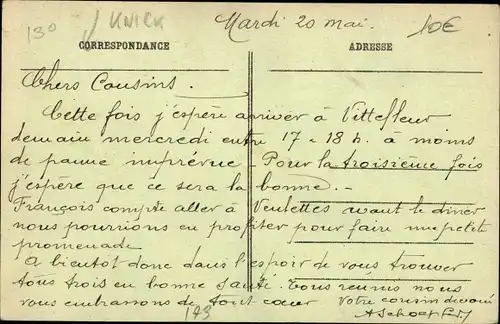 130 KNICK Mardi 20 mai. 10€
CORRESPONDANCE ADRESSE
Chers Cousins.
Cette fois j'espère arriver à Vittefleur
demain mercredi entre 17 = 18 h. à moins
de panne imprévue - Pour la troisième fois
j'espère que ce sera la bonne. -
François compte aller à Veulettes avant le diner
nous pourrions en profiter pour faire une petit
promenade
A bientôt donc dans l'espoir de vous trouver
tous trois en bonne santé. Tous réunis nous
vous embrassons de tout coeur Votre cousin dévoué
143